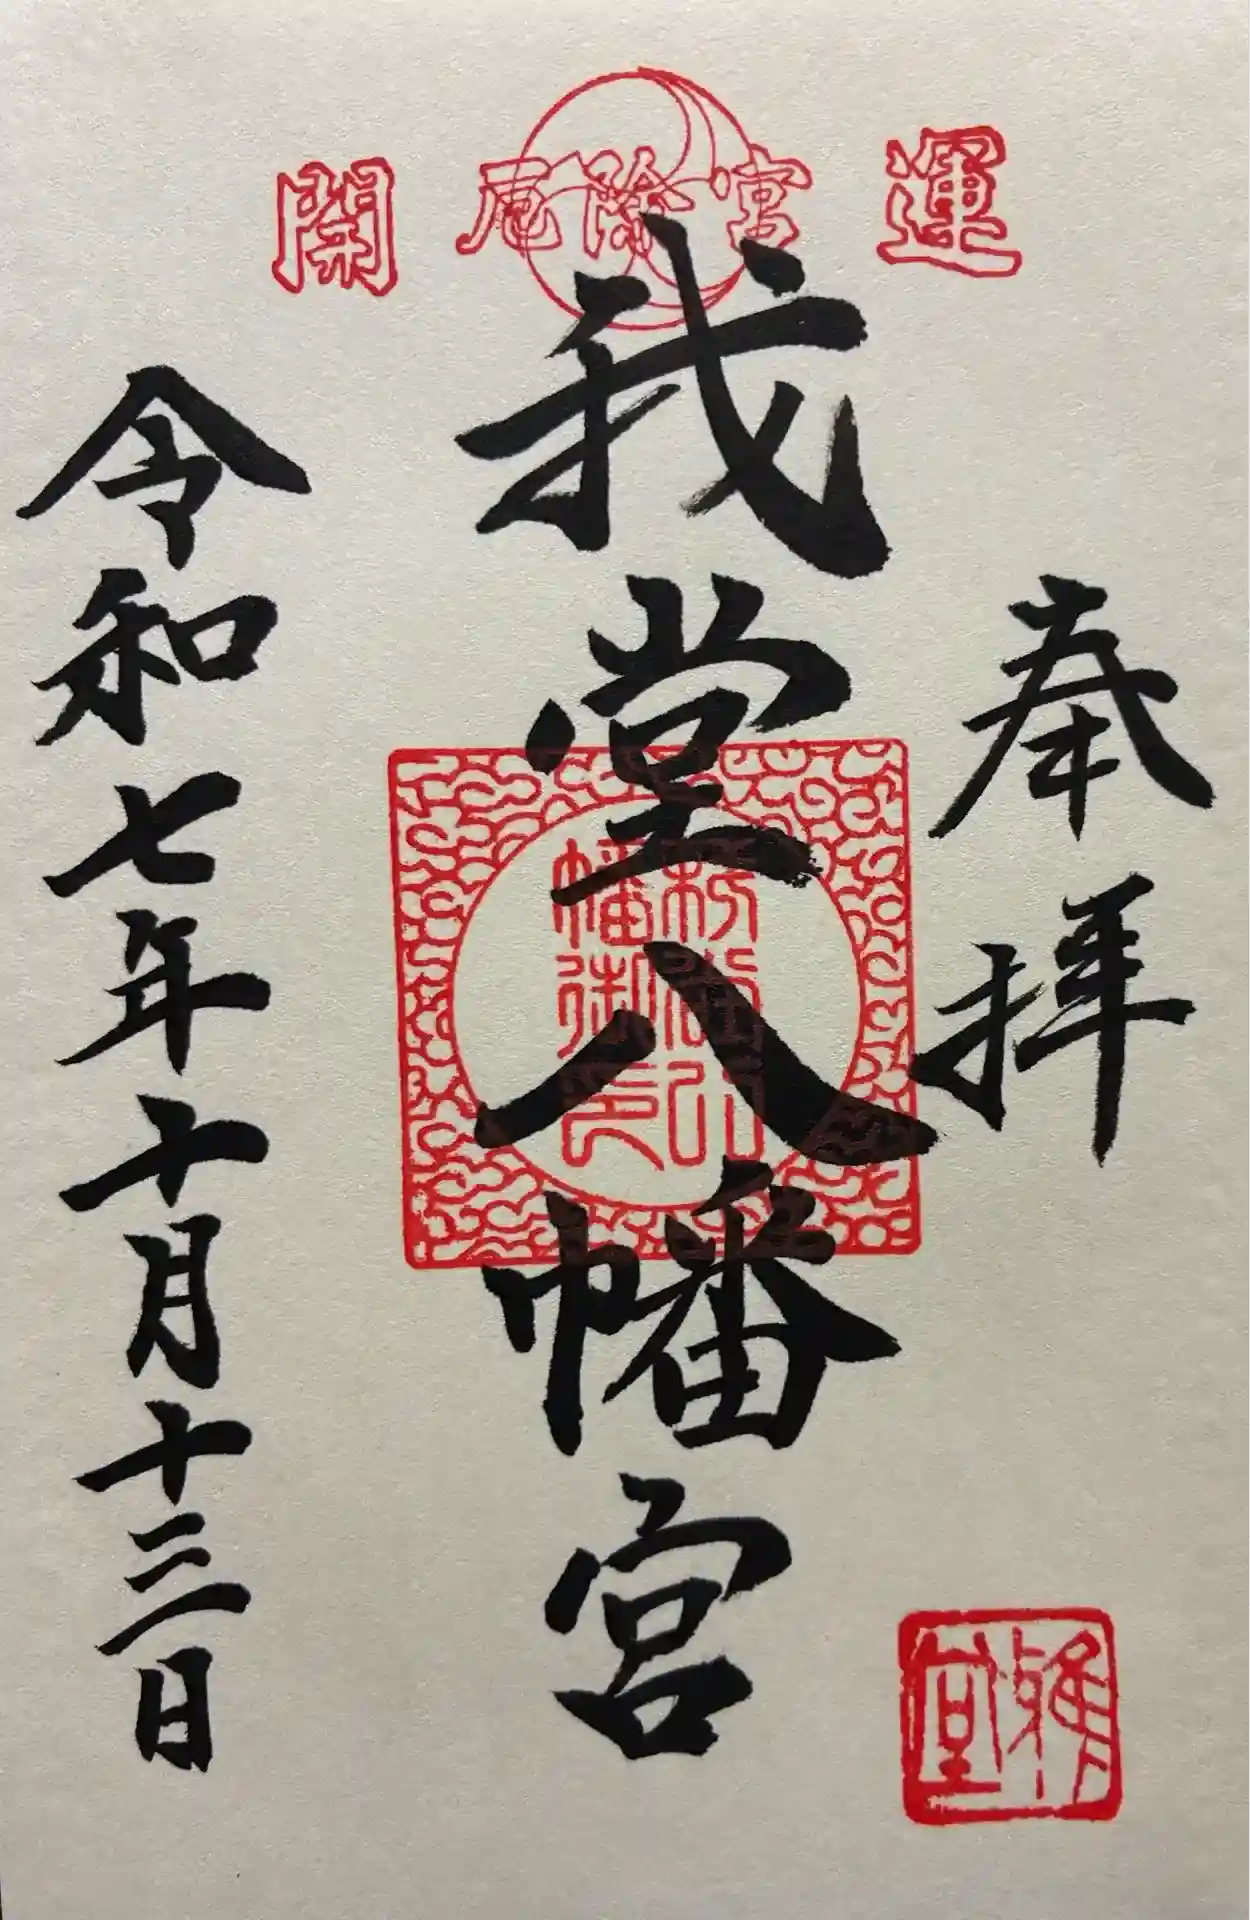 開 厄除宮 運
奉拝
我堂八幡宮
令和七年十月十三日
雅堂